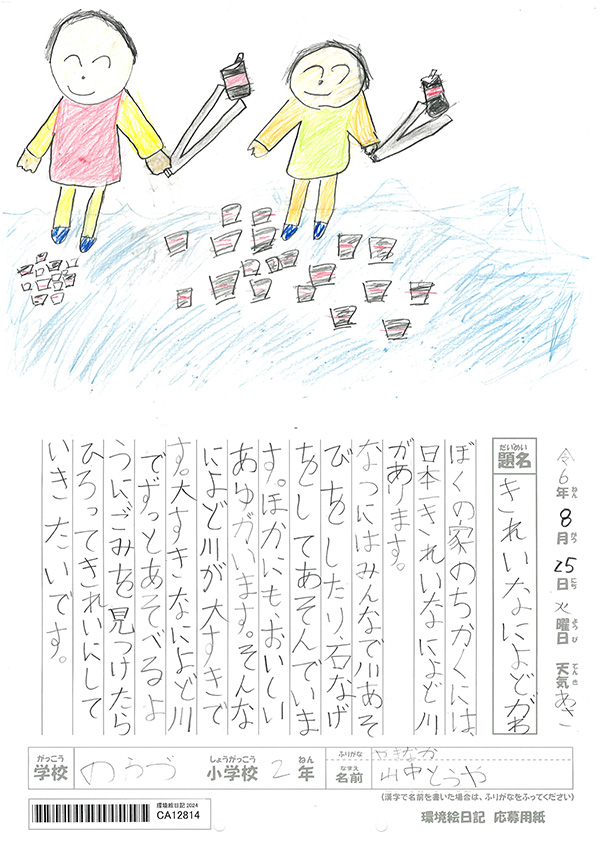 令6年 8月 25日 火曜日 天気
ねん がつ にち ようび てんき
だいめい
題名 きれいなによどがわ
ぼくの家のちかくには、
日本一きれいなによど川
があります。
なつにはみんなで川あそ
びをしたり、石なげ
をしてあそんでいま
す。ほかにも、おいしい
あゆがいます。そんな
によど川が大すきで
す。大すきなによど川
でずっとあそべるよ
うに、ごみを見つけたら
ひろってきれいにして
いきたいです。
がっこう しょうがっこう ねん
学校 のうづ 小学校 2年
ふりがな やまなか
なまえ
名前 山中とうや
(漢字で名前を書いた場合は、ふりがなをふってください)
環境絵日記2024
CA12814
環境絵日記 応募用紙